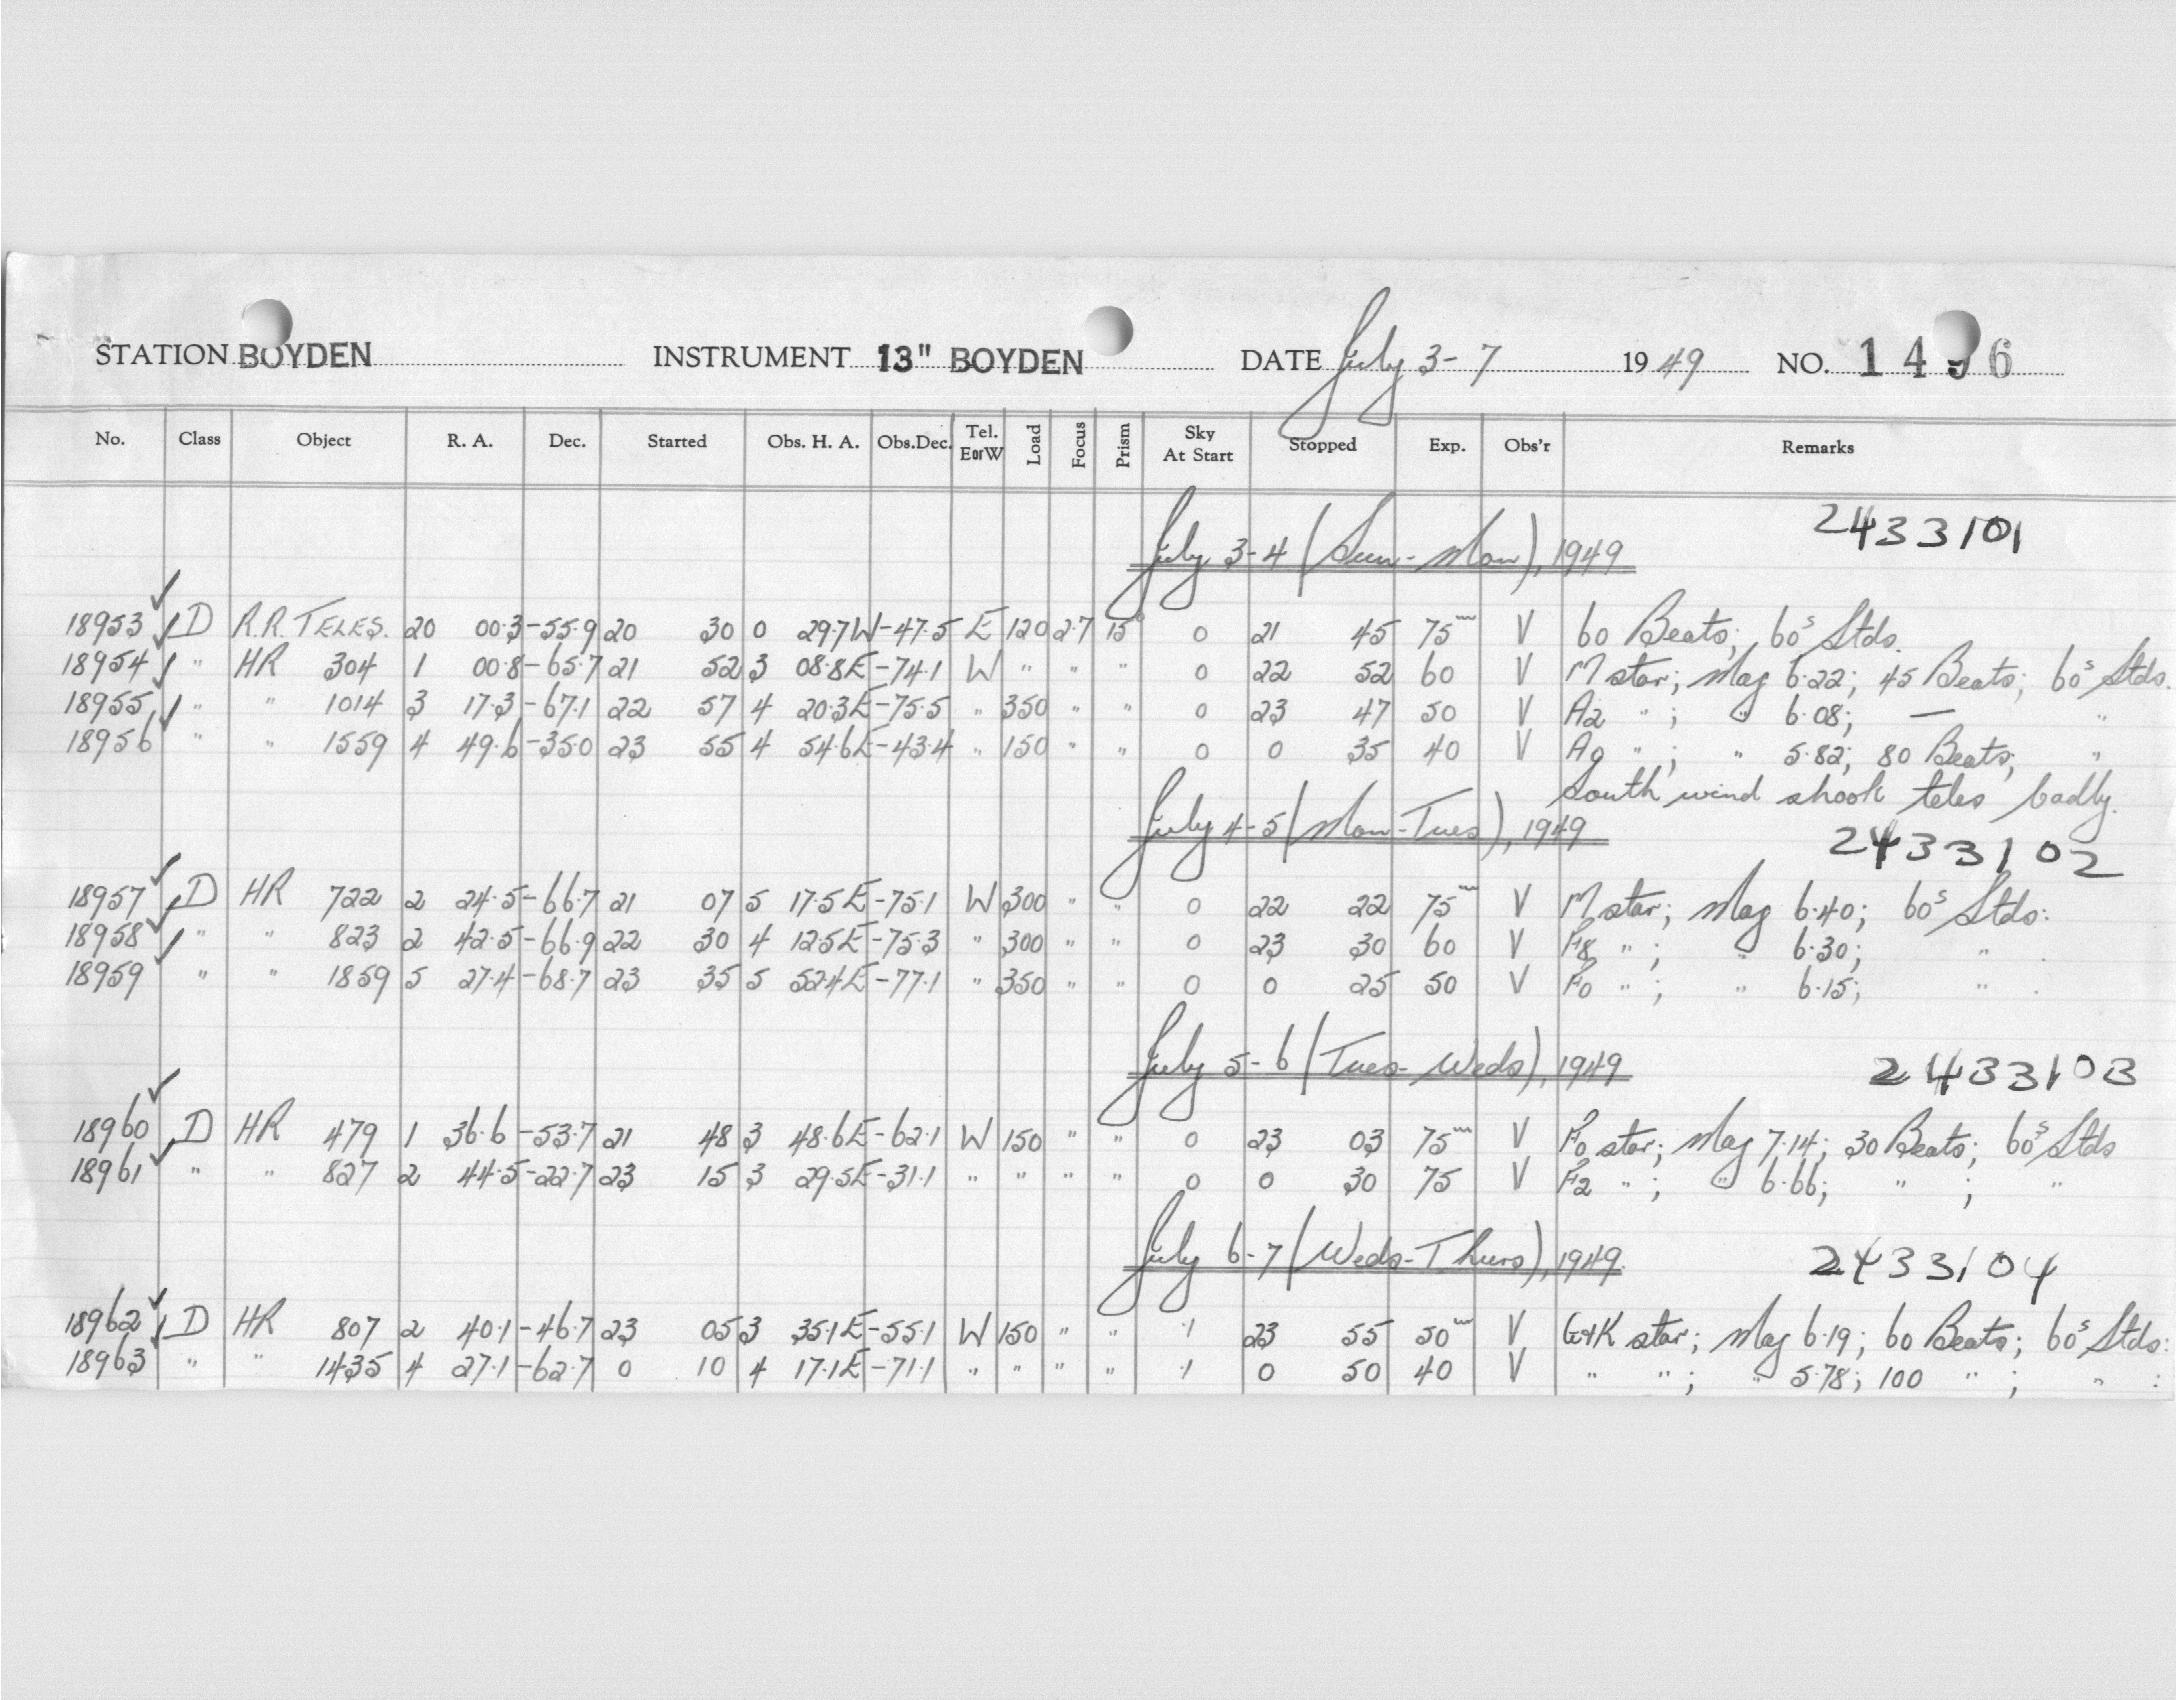 STATION BOYDEN INSTRUMENT 13" BOYDEN DATE July 3-7 1949 NO. 1496
No. Class Object R. A. Dec. Started Obs. H. A. Obs.Dec. Tel. EorW Load Focus Prism Sky At Start Stopped Exp. Obs'r Remarks
July 3-4 (Sun-Mon), 1949 2433101
18953 ✓ D R.R. TELES. 20 00.3 -55.9 20 30 0 29.7W -47.5 E 120 2.7 15° 0 21 45 75m V 60 Beats; 60s Stds.
18954 ✓ " HR 304 1 00.8 -65.7 21 52 3 08.8E -74.1 W " " " 0 22 52 60 V M star; Mag 6.22; 45 Beats; 60s Stds.
18955 ✓ " " 1014 3 17.3 -67.1 22 57 4 20.3E -75.5 " 350 " " 0 23 47 50 V A2 " ; " 6.08; — "
18956 ✓ " " 1559 4 49.6 -35.0 23 55 4 54.6E -43.4 " 150 " " 0 0 35 40 V A0 " ; " 5.82; 80 Beats; "
South wind shook teles badly.
July 4-5 (Mon-Tues), 1949 2433102
18957 ✓ D HR 722 2 24.5 -66.7 21 07 5 17.5E -75.1 W 300 " " 0 22 22 75m V M star; Mag 6.40; 60s Stds:
18958 ✓ " " 823 2 42.5 -66.9 22 30 4 12.5E -75.3 " 300 " " 0 23 30 60 V F8 " ; " 6.30; " .
18959 ✓ " " 1859 5 27.4 -68.7 23 35 5 52.4E -77.1 " 350 " " 0 0 25 50 V F0 " ; " 6.15; " .
July 5-6 (Tues-Weds), 1949 2433103
18960 ✓ D HR 479 1 36.6 -53.7 21 48 3 48.6E -62.1 W 150 " " 0 23 03 75m V F0 star; Mag 7.14; 30 Beats; 60s Stds
18961 ✓ " " 827 2 44.5 -22.7 23 15 3 29.5E -31.1 " " " " 0 0 30 75 V F2 " ; " 6.66; " ; "
July 6-7 (Weds-Thurs), 1949. 2433104
18962 ✓ D HR 807 2 40.1 -46.7 23 05 3 35.1E -55.1 W 150 " " .1 23 55 50m V G+K star; Mag 6.19; 60 Beats; 60s Stds:
18963 ✓ " " 1435 4 27.1 -62.7 0 10 4 17.1E -71.1 " " " " .1 0 50 40 V " " ; " 5.78; 100 " ; " :